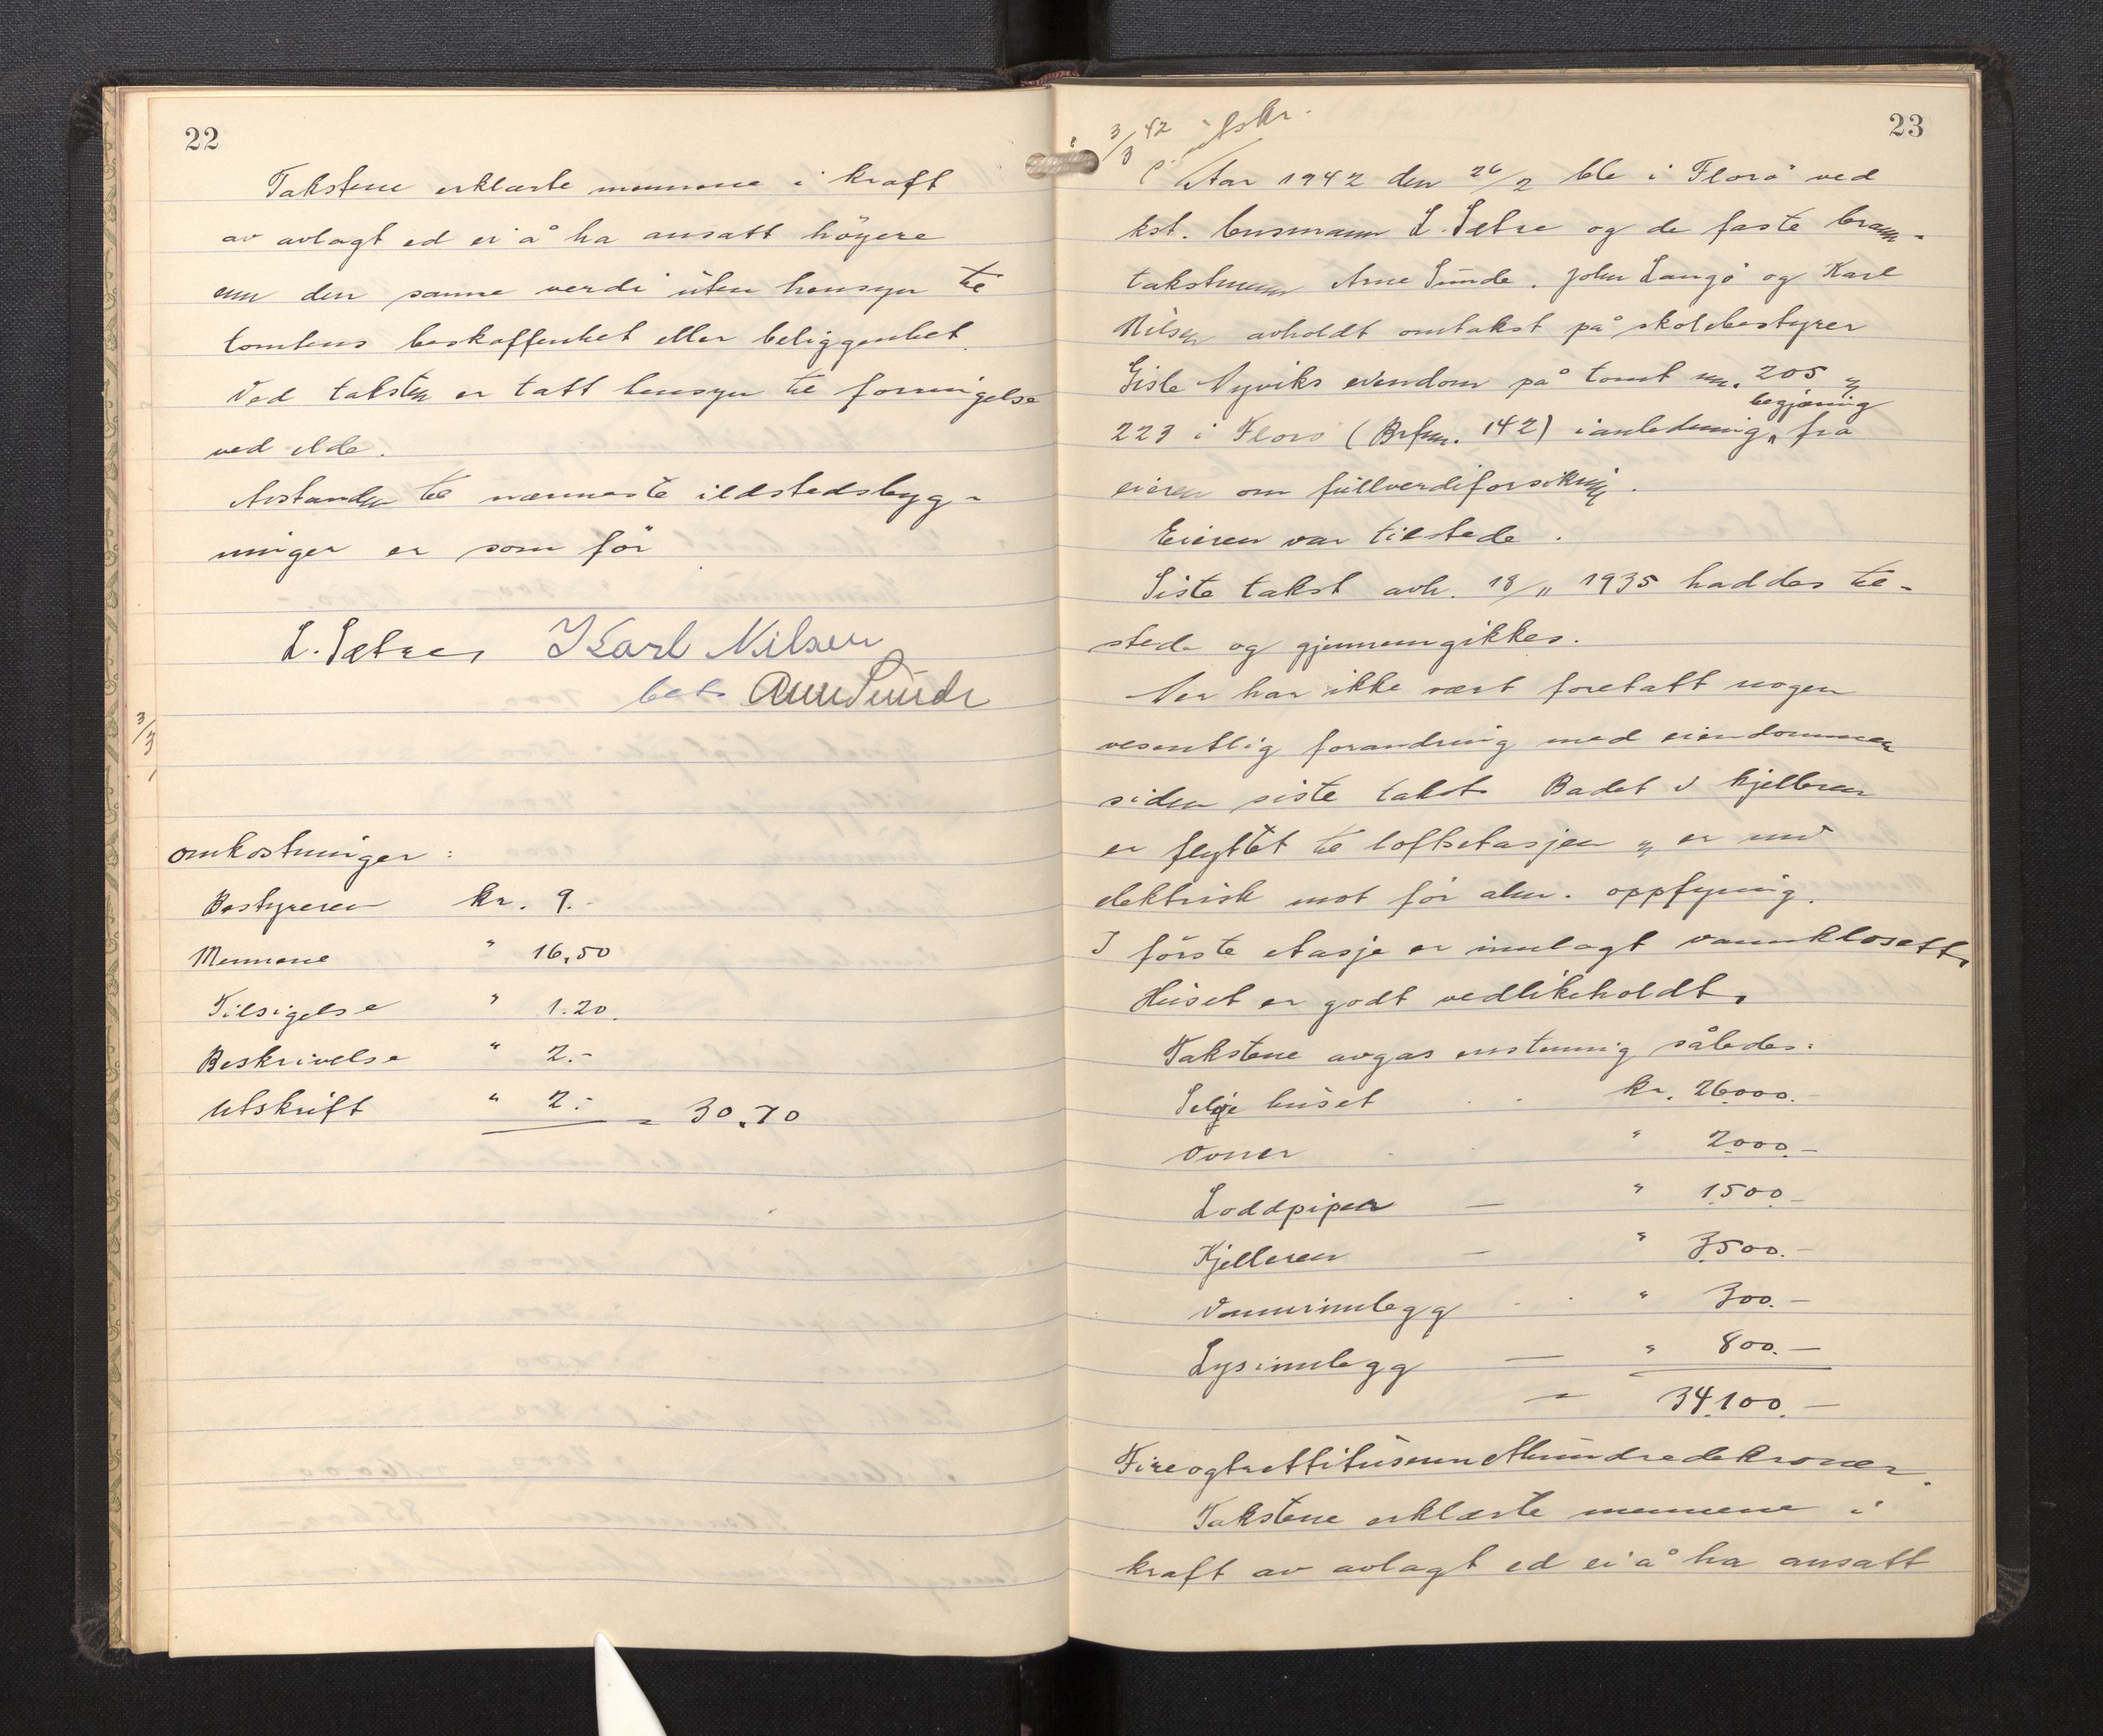 22
Takstene erklærte mennene i kraft
av avlagt ed ei å ha ansatt höyere
enn den sanne verdi uten hensyn til
tomtens beskaffenhet eller beliggenhet.
Ved taksten er tatt hensyn til forringelse
ved elde.
Avstanden til nærmeste ildstedsbyg-
ninger er som för
L. Sætre, Karl Nilsen
Arne Sunde
3/3
Omkostninger:
Bestyreren kr. 9.-
Mennene " 16,50
Tilsigelse " 1.20.
Beskrivelse " 2.-
Utskrift " 2.- = 30.70
23
3/3 42 utskr.
Aar 1942 den 26/2 ble i Florö ved
kst. lensmann L. Sætre og de faste brann-
takstmenn Arne Sunde, John Langö og Karl
Nilsen avholdt omtakst på skolebestyrer
Gisle Nyviks eiendom på tomt nr. 205 og
begjæring
223 i Florö (Brfnr. 142) i anledning fra
eieren om fullverdiforsikring.
Eieren var tilstede.
Siste takst avh. 18/11 1935 haddes til-
stede og gjennemgikkes.
Der har ikke vært foretatt nogen
vesentlig forandring med eiendommen
siden siste takst. Badet i kjelleren
er flyttet til loftsetasjen og er nu
elektrisk mot för alm. oppfyring.
I förste etasje er innlagt vannklosett.
Huset er godt vedlikeholdt.
Takstene avgas enstemmig således:
Selve huset kr. 26000.-
Ovner " 2000.-
Loddpipen — " 1500.-
Kjelleren — " 3500.-
Vanninnlegg " 300.-
Lysinnlegg — " 800.-
= 34.100.-
Fireogtrettitusenetthundredekroner.
Takstene erklærte mennene i
kraft av avlagt ed ei å ha ansatt